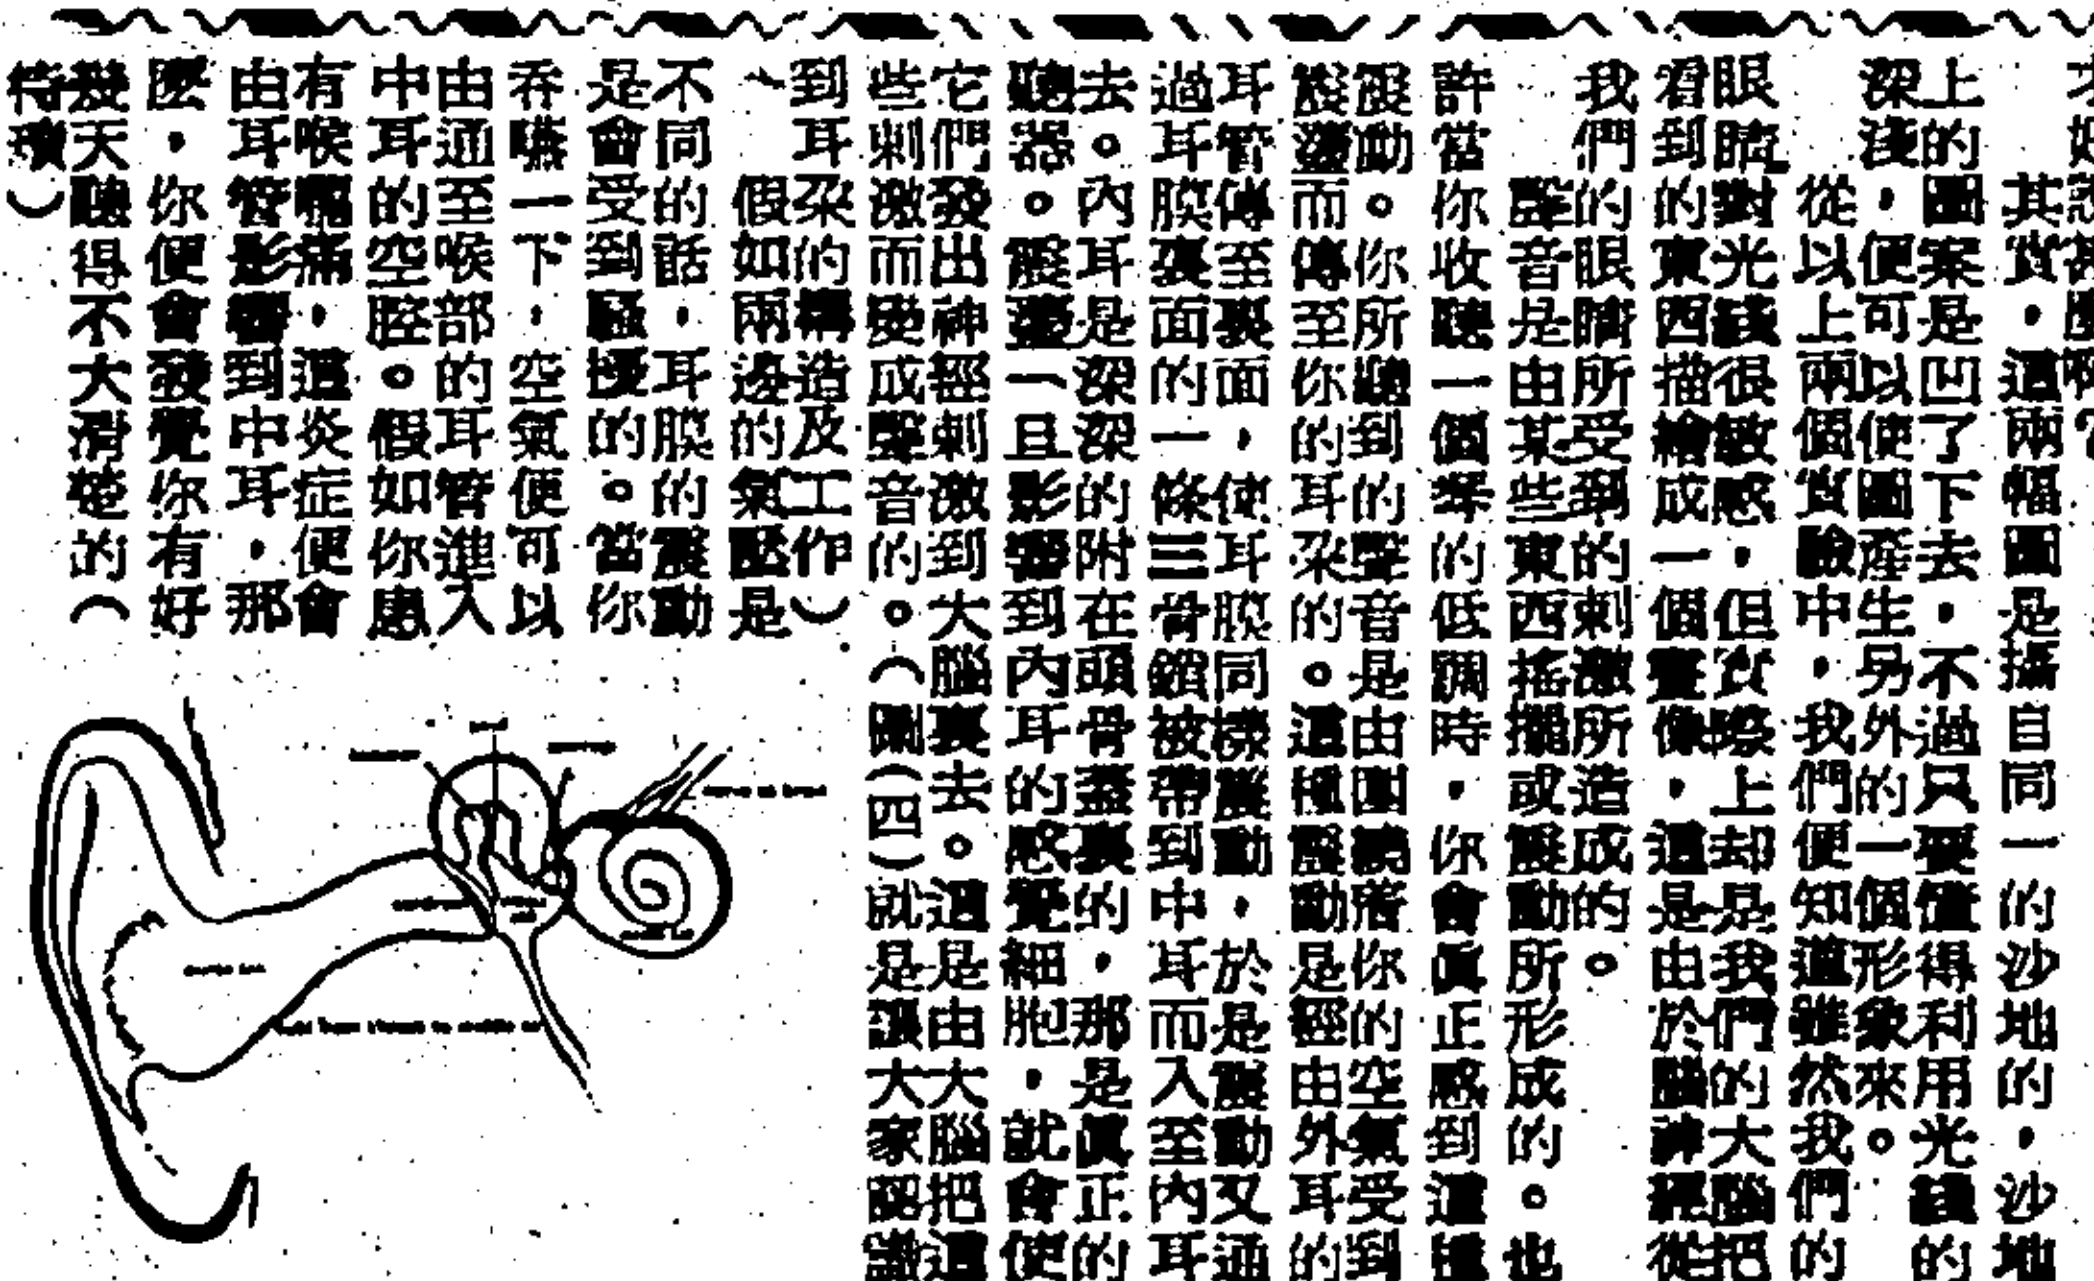 其實，這兩幅圖是攝自同一的沙地的，沙地
上的圖案是凹了下去，不過只要懂得利用光綫的
深淺，便可以使圖產生另外的一個形象來。
從以上兩個實驗中，我們便知道雖然我們的
眼睛對光綫很敏感，但實際上却是我們的大腦把
看到的東西描繪成一個畫像，這是由於腦神經從
我們的眼睛所受到的刺激所造成的。
聲音是由某些東西搖擺或震動所形成的。也
許當你收聽一個琴的低調時，你會真正感到這種
震動。你所聽到的聲音是由圍繞着你的空氣受到
震盪而傳至你的耳朶的。這種震動是經由外耳的
耳管傳至裏面，使耳膜同樣震動，於是震動又通
過耳膜裏面的一條三骨鎖被帶到中耳而入至內耳
去。內耳是深深的附在頭骨蓋裏的，那是真正的
聽器。震盪一旦影響到內耳的感覺細胞，就會使
它們發出神經刺激到大腦裏去。這是由大腦把這
些刺激而變成聲音的。（圖（四）就是讓大家認識
到耳朶的構造及工作）
假如兩邊的氣壓是
不同的話，耳膜的震動
是會受到騷擾的。當你
吞嚥一下，空氣便可以
由通至喉部的耳管進入
中耳的空腔。假如你患
有喉嚨痛，這炎症便會
由耳管影響到中耳，那
麽，你便會發覺你有好
幾天聽得不大清楚的（
待續）